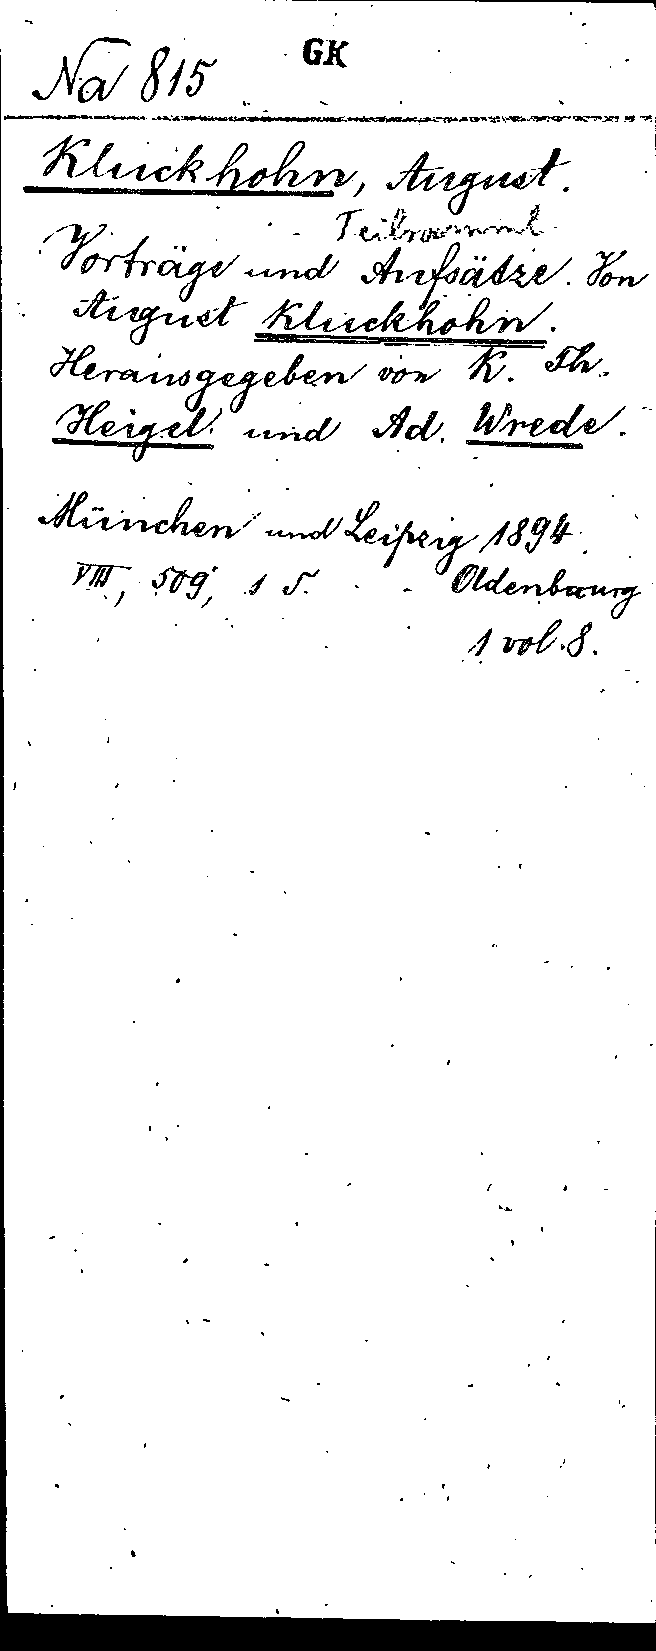 GK
Na 815
Kluckhohn, August.
Teilsamml.
Vorträge und Aufsätze. Von
August Kluckhohn.
Herausgegeben von K. Th.
Heigel und Ad. Wrede.
München und Leipzig 1894.
VIII, 509, 1 S. Oldenbourg
1 vol. 8.